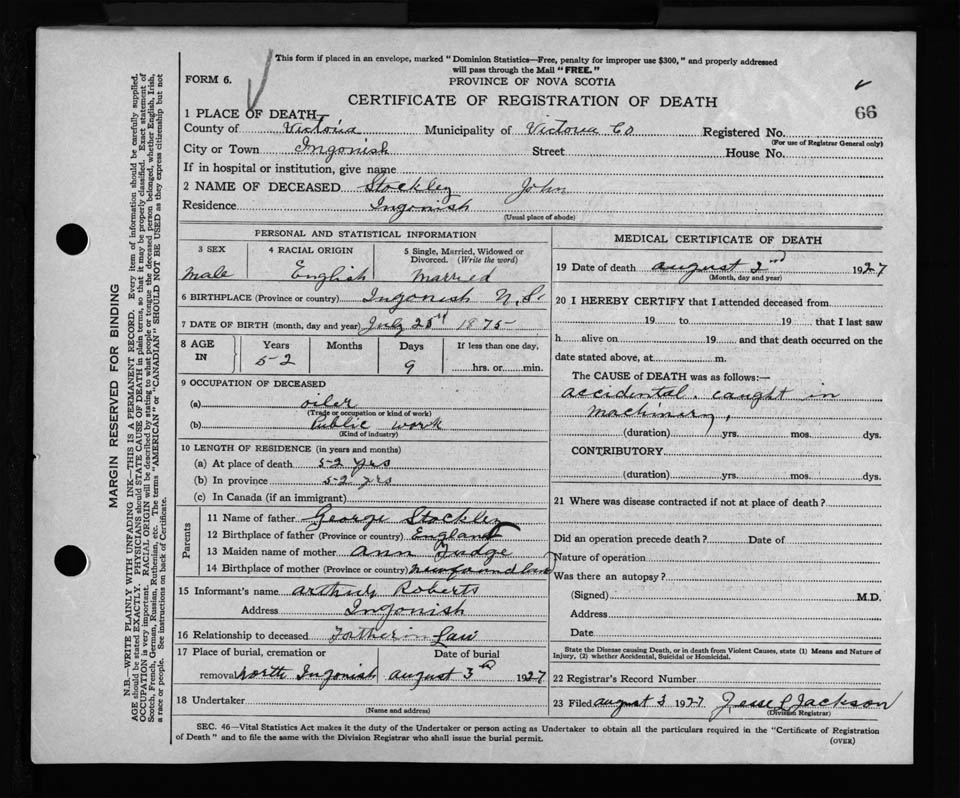 This form if placed in an envelope, marked "Dominion Statistics—Free, penalty for improper use $300," and properly addressed
will pass through the Mail "FREE."
FORM 6.
PROVINCE OF NOVA SCOTIA
CERTIFICATE OF REGISTRATION OF DEATH
66
1 PLACE OF DEATH—
County of Victoria Municipality of Victoria Co Registered No.
(For use of Registrar General only)
City or Town Ingonish Street House No.
If in hospital or institution, give name
2 NAME OF DECEASED Stockley John
Residence Ingonish
(Usual place of abode)
PERSONAL AND STATISTICAL INFORMATION
3 SEX 4 RACIAL ORIGIN 5 Single, Married, Widowed or
Divorced. (Write the word)
male English Married
6 BIRTHPLACE (Province or country) Ingonish N.S.
7 DATE OF BIRTH (month, day and year) July 25th 1875
8 AGE IN Years Months Days If less than one day,
52 9 hrs. or min.
9 OCCUPATION OF DECEASED
(a) oiler
(Trade or occupation or kind of work)
(b) Public work
(Kind of industry)
10 LENGTH OF RESIDENCE (in years and months)
(a) At place of death 52 yrs
(b) In province 52 yrs
(c) In Canada (if an immigrant)
Parents
11 Name of father George Stockley
12 Birthplace of father (Province or country) England
13 Maiden name of mother Ann Fudge
14 Birthplace of mother (Province or country) Newfoundland
15 Informant's name Arthur Roberts
Address Ingonish
16 Relationship to deceased Father in Law
17 Place of burial, cremation or Date of burial
removal North Ingonish August 3rd 1927
18 Undertaker
(Name and address)
MEDICAL CERTIFICATE OF DEATH
19 Date of death August 2nd 1927
(Month, day and year)
20 I HEREBY CERTIFY that I attended deceased from
19 to 19 that I last saw
h alive on 19 and that death occurred on the
date stated above, at m.
The CAUSE of DEATH was as follows:—
accidental. caught in
machinery,
(duration) yrs. mos. dys.
CONTRIBUTORY
(duration) yrs. mos. dys.
21 Where was disease contracted if not at place of death?
Did an operation precede death? Date of
Nature of operation
Was there an autopsy?
(Signed) M.D.
Address
Date
State the Disease causing Death, or in death from Violent Causes, state (1) Means and Nature of
Injury, (2) whether Accidental, Suicidal or Homicidal.
22 Registrar's Record Number
23 Filed August 3 1927 Jesse L Jackson
(Division Registrar)
SEC. 46—Vital Statistics Act makes it the duty of the Undertaker or person acting as Undertaker to obtain all the particulars required in the "Certificate of Registration
of Death" and to file the same with the Division Registrar who shall issue the burial permit.
(OVER)
MARGIN RESERVED FOR BINDING
N.B.—WRITE PLAINLY WITH UNFADING INK—THIS IS A PERMANENT RECORD. Every item of information should be carefully supplied.
AGE should be stated EXACTLY. PHYSICIANS should STATE CAUSE OF DEATH in plain terms, so that it may be properly classified. Exact statement of
OCCUPATION is very important. RACIAL ORIGIN will be described by stating to what people or tongue the deceased person belonged, whether English, Irish,
Scotch, French, German, Russian, Ruthenian, etc. The terms "AMERICAN" or "CANADIAN" SHOULD NOT BE USED as they express citizenship but not
a race or people. See instructions on back of Certificate.